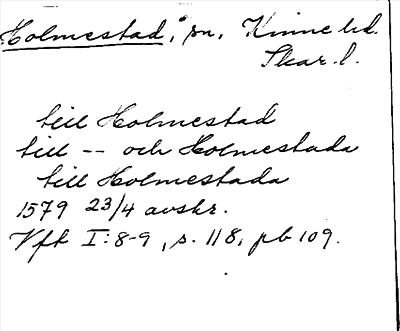 Holmestad, sn, Kinne hd.
Skar. l.
till Holmestad
till -- och Holmestada
till Holmestada
1579 23/4 avskr.
Vft I:8-9, s. 118, pb 109.